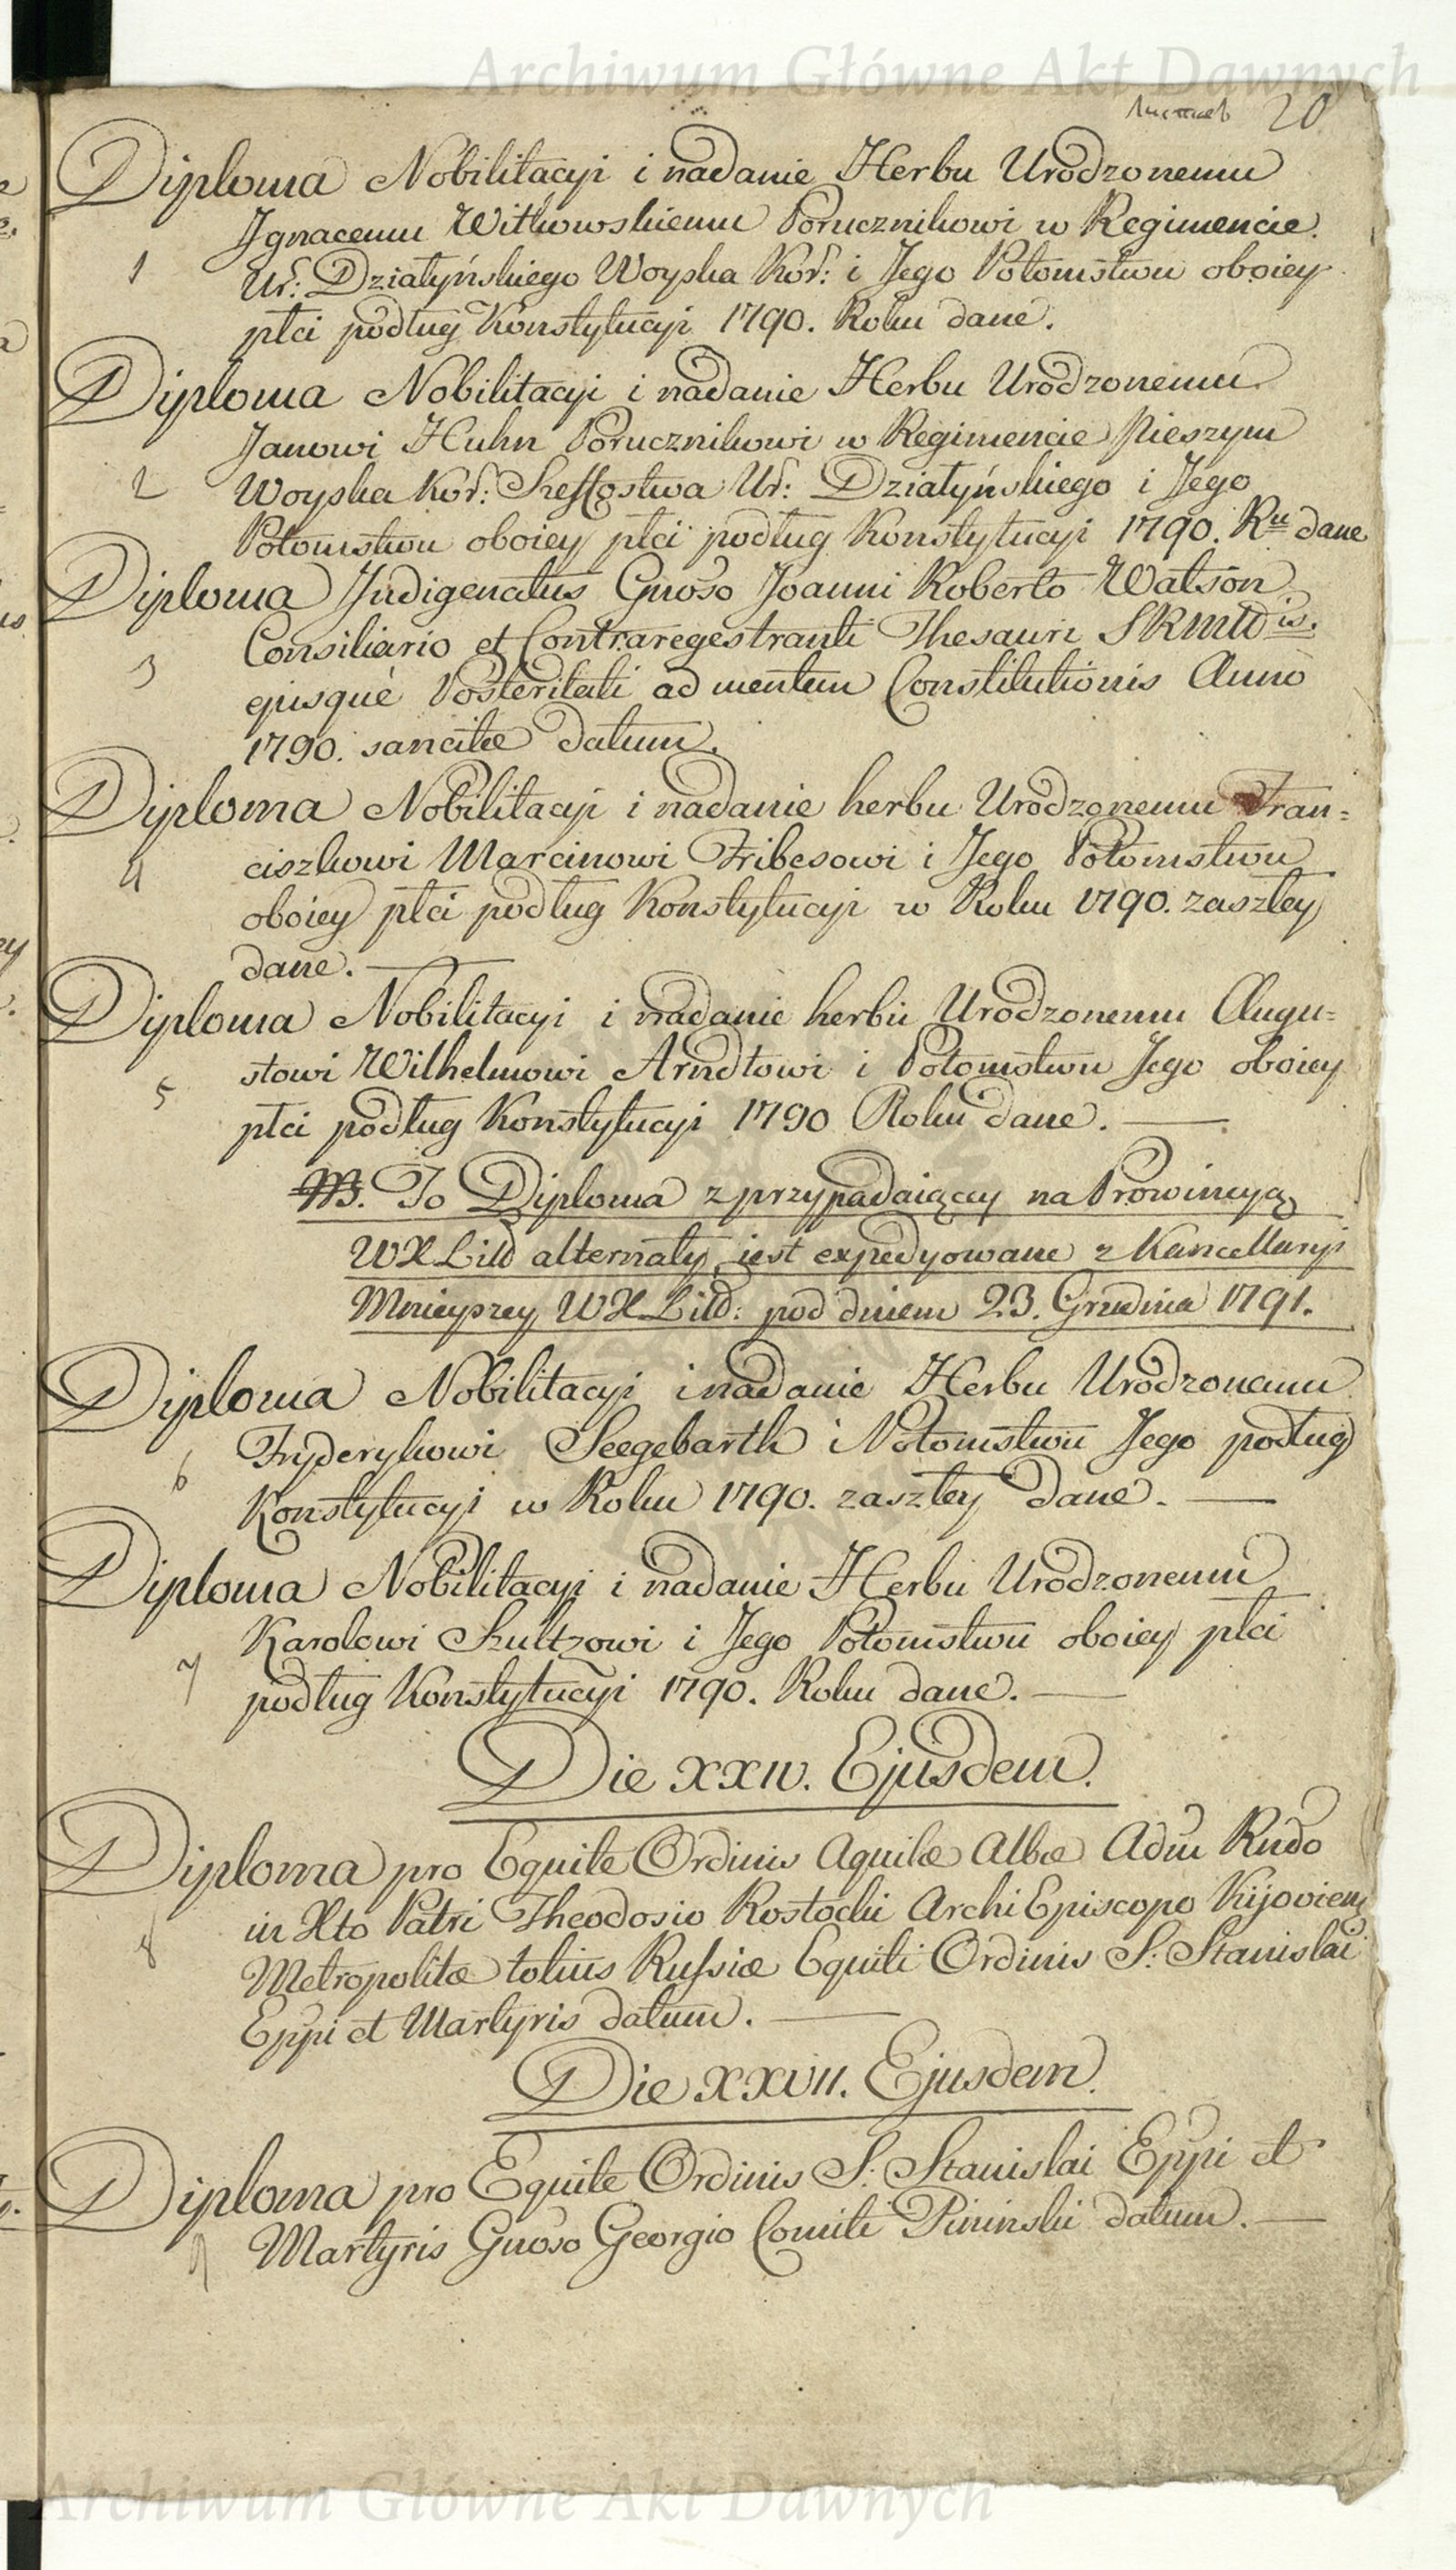 Archiwum Główne Akt Dawnych
листов 20
Diploma Nobilitacyi i nadanie Herbu Urodzonemu
Ignacemu Witkowskiemu Porucznikowi w Regimencie
1
Ur: Działyńskiego Woyska Kor: i Jego Potomstwu oboiey
płci podług Konstytucyi 1790. Roku dane.
Diploma Nobilitacyi i nadanie Herbu Urodzonemu
Janowi Huhn Porucznikowi w Regimencie Pieszym
2
Woyska Kor: Szeffostwa Ur: Działyńskiego i Jego
Potomstwu oboiey płci podług Konstytucyi 1790. Ru dane
Diploma Indigenatus Gnoso Joanni Roberto Watson
Consiliario et Contraregestranti Thesauri
3
ejusque Posteritati ad mentem Constitutionis Anno
1790. sancitæ datum.
Diploma Nobilitacyi i nadanie herbu Urodzonemu Fran=
ciszkowi Marcinowi Fribesowi i Jego Potomstwu
4
oboiey płci podług Konstytucyi w Roku 1790. zaszłey
dane.
Diploma Nobilitacyi i nadanie herbu Urodzonemu Augu=
stowi Wilhelmowi Arndtowi i Potomstwu Jego oboiey
5
płci podług Konstytucyi 1790 Roku dane.
To Diploma z przypadaiący na Prowincyą
WXLitt alternaty, iest expedyowane z Kancellaryi
Mnieyszey WXLitt: pod dniem 23. Grudnia 1791.
Diploma Nobilitacyi i nadanie Herbu Urodzonemu
Fryderykowi Seegebarth i Potomstwu Jego podług
6
Konstytucyi w Roku 1790. zaszłey dane.
Diploma Nobilitacyi i nadanie Herbu Urodzonemu
Karolowi Szultzowi i Jego Potomstwu oboiey płci
7
podług Konstytucyi 1790. Roku dane.
Die XXIV. Ejusdem.
Diploma pro Equite Ordinis Aquilæ Albæ Adm Rndo
in Xto Patri Theodosio Rostocki Archi Episcopo Kijovien
8
Metropolitæ totius Russiæ Equiti Ordinis S: Stanislai
Eppi et Martyris datum.
Die XXVII. Ejusdem.
Diploma pro Equite Ordinis S: Stanislai Eppi et
9
Martyris Gnoso Georgio Comiti Pininski datum.
Archiwum Główne Akt Dawnych